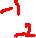 -1
-2